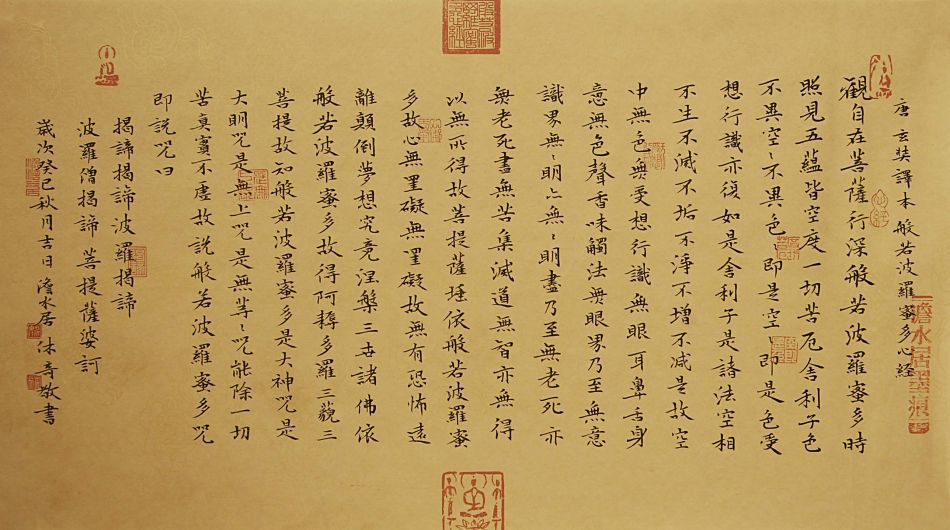 澹水居墨痕
唐玄奘譯本般若波羅蜜多心經
觀自在菩薩行深般若波羅蜜多時
照見五蘊皆空度一切苦厄舍利子色
不異空〻不異色〻即是空〻即是色受
想行識亦復如是舍利子是諸法空相
不生不滅不垢不淨不增不減是故空
中無色無受想行識無眼耳鼻舌身
意無色聲香味觸法無眼界乃至無意
識界無〻明亦無〻明盡乃至無老死亦
無老死盡無苦集滅道無智亦無得
以無所得故菩提薩埵依般若波羅蜜
多故心無罣礙無罣礙故無有恐怖遠
離顛倒夢想究竟涅槃三世諸佛依
般若波羅蜜多故得阿耨多羅三藐三
菩提故知般若波羅蜜多是大神咒是
大明咒是無上咒是無等〻咒能除一切
苦真實不虛故說般若波羅蜜多咒
即說咒曰
揭諦揭諦波羅揭諦
波羅僧揭諦菩提薩婆訶
歲次癸巳秋月吉日澹水居休奇敬書